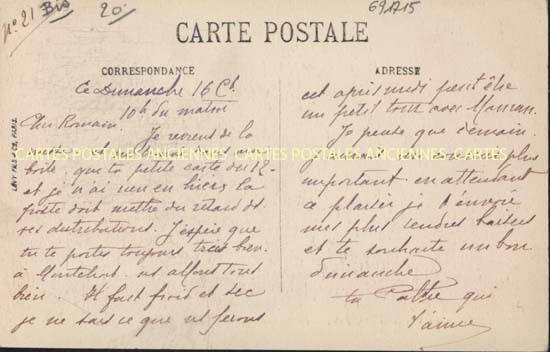 N° 21 Bis
20
69A15
CARTE POSTALE
CORRESPONDANCE
ADRESSE
Ce Dimanche 16 Ct
10h du matin
Cher Romain. Je reviens de la
boîte que ta petite carte du 12
et je n'ai rien eu hier, la
poste doit mettre du retard ds
ses distributions. J'espère que
tu te portes toujours très bien
à Montchat. ns allons tous
bien. Il fait froid et sec
je ne sais ce que ns ferons
cet après midi peut être
un petit tour avec Maman.
Je pense que demain
plus
important en attendant
ce plaisir je t'envoie
mes plus tendres baisers
et te souhaite un bon
dimanche
ta qui
t'aime
CARTES-POSTALES-ANCIENNES CARTES-POSTALES-ANCIENNES